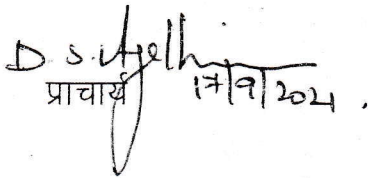 D. S.
प्राचार्य 17/9/2021.